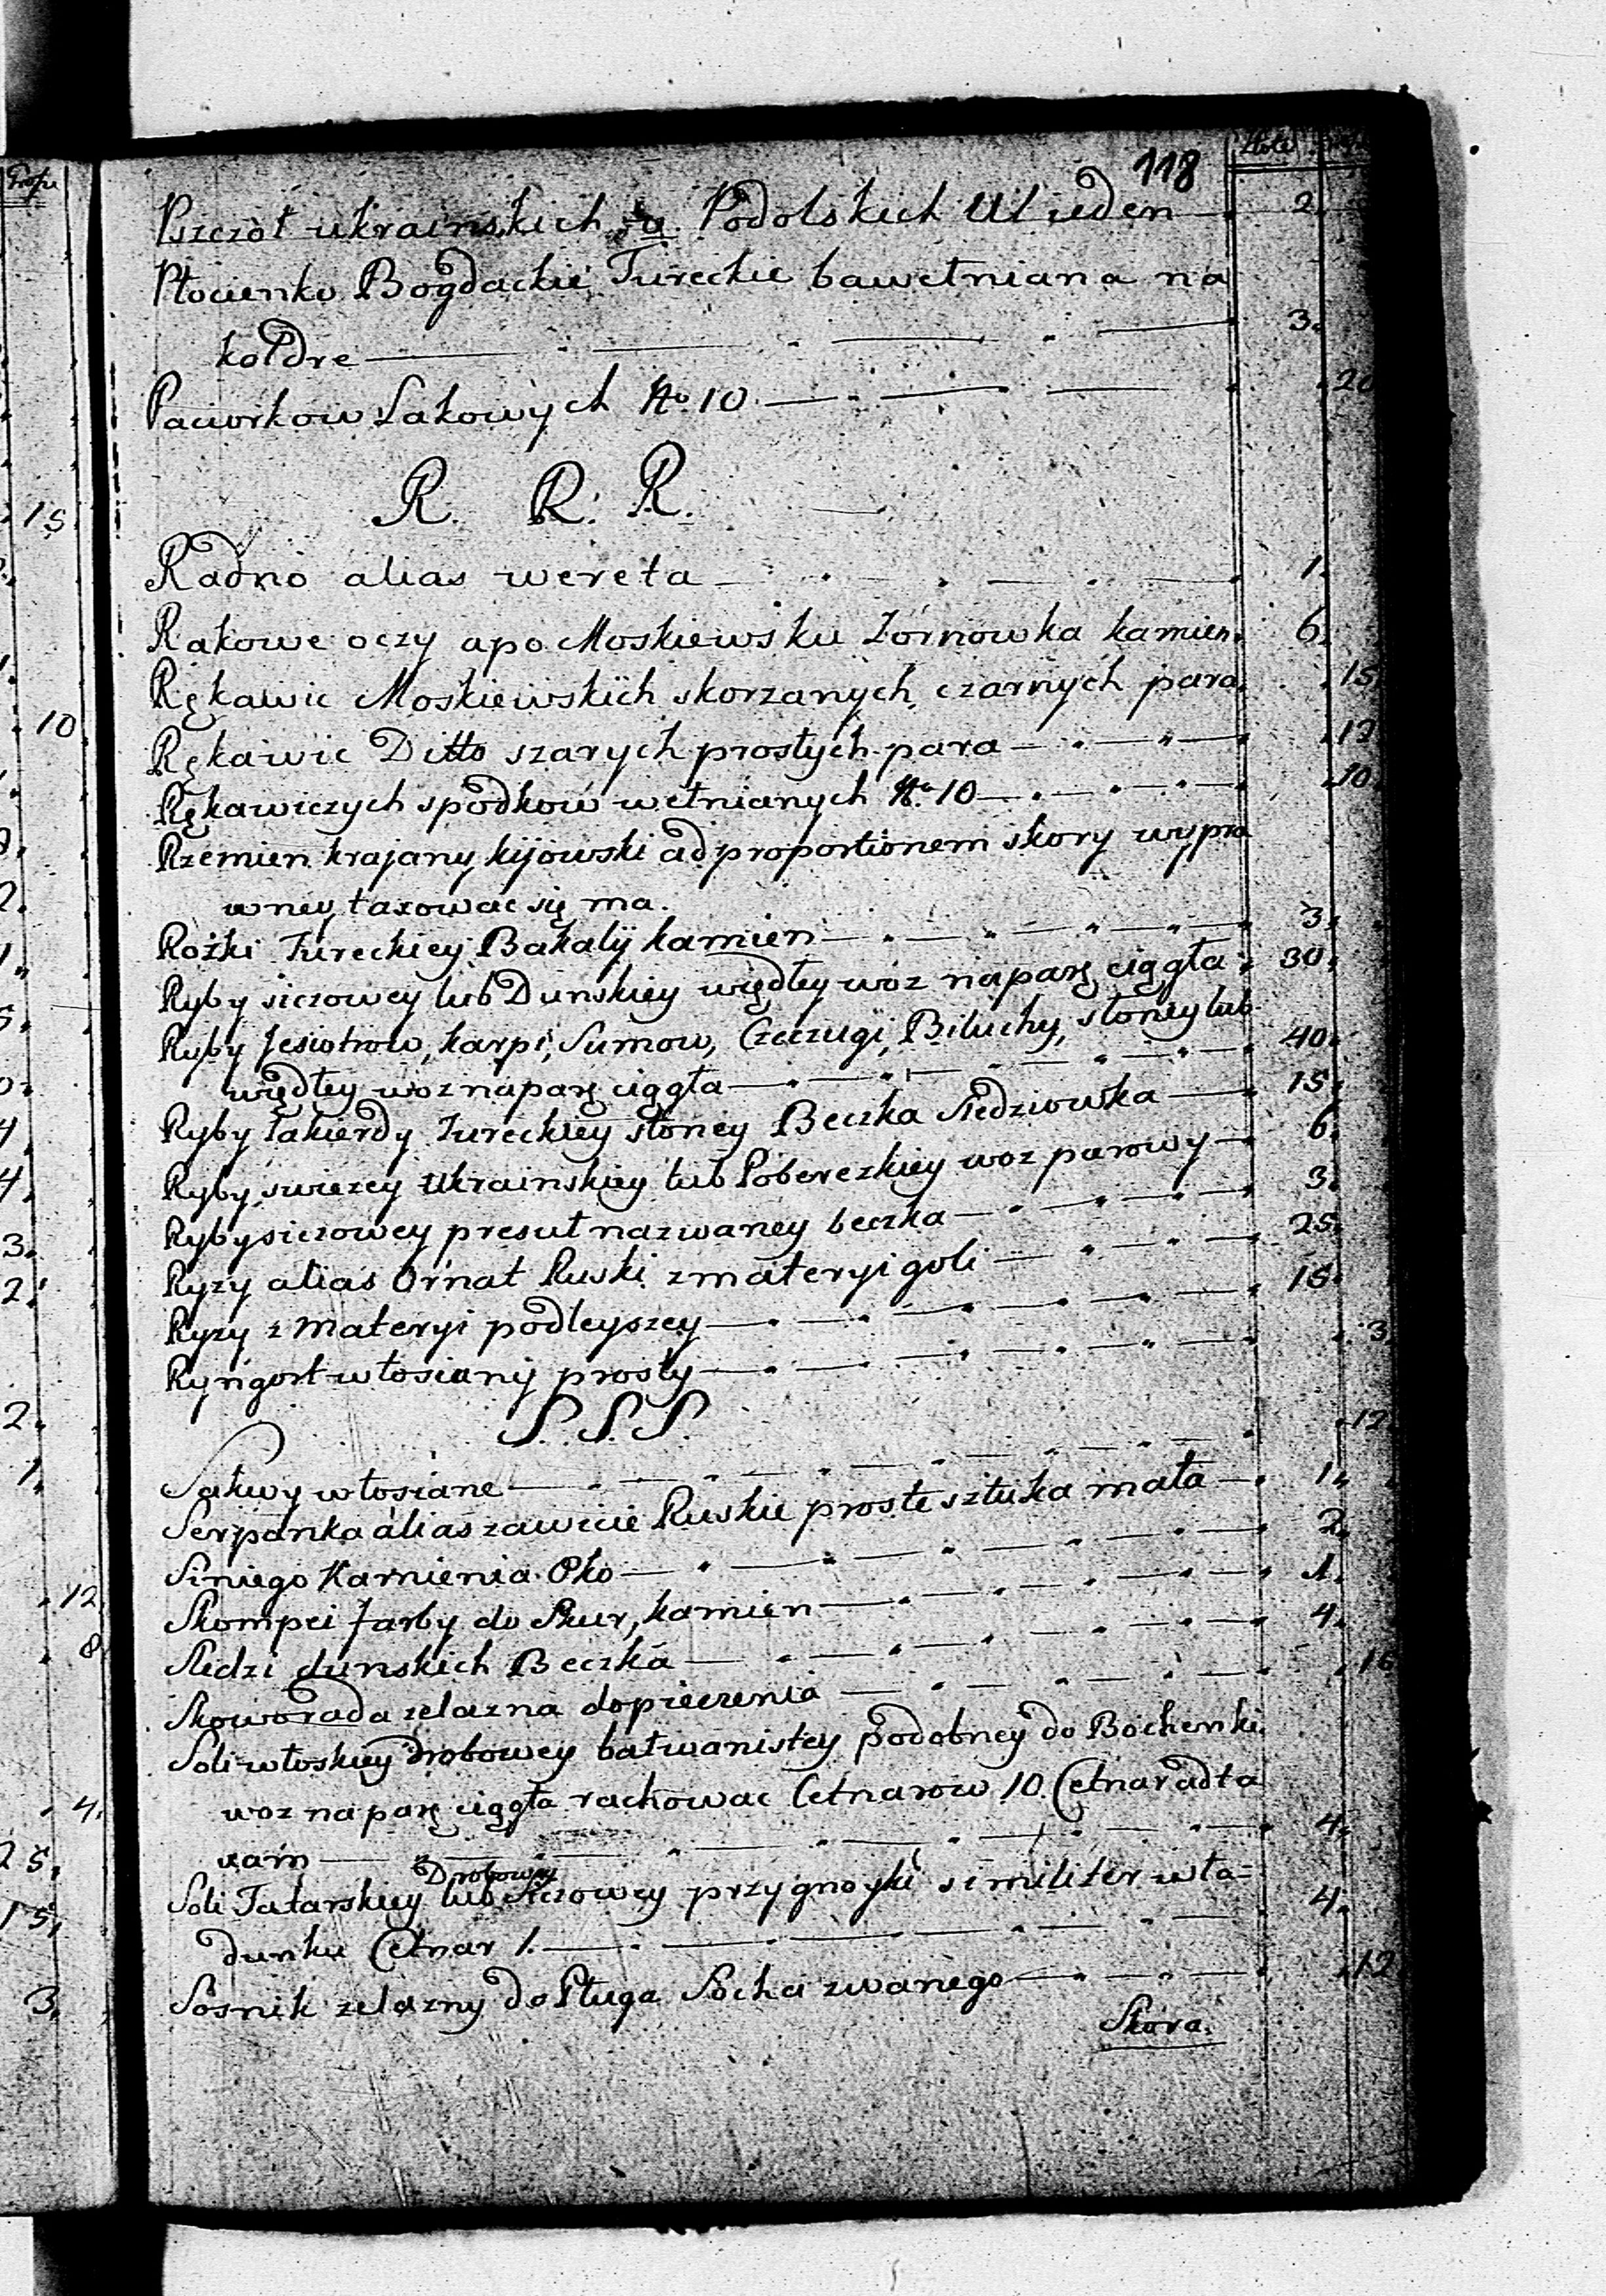 118
Złote
Pszczoł ukrainskich Podolskich Ul ieden 2.
Płocienko Bogdackie Tureckie bawełniana na
kołdre 3.
Paciorkow Lakowych No. 10 20
R. R. R.
Radno alias wereta 1.
Rakowe oczy apo Moskiewsku Zórnowka kamien. 6.
Rękawic Moskiewskich skorzanych czarnych para. 15
Rękawic Ditto szarych prostych para 12
Rękawiczych spodkow wełnianych No. 10 10.
Rzemien krajany kijowski ad proportionem skory wypra
wney taxowac się ma.
Rożki Tureckiey Bakalij kamien 3.
Ryby siczowey lub Dunskiey wędłey woz naparę ciągła 30.
Ryby Jesiotrow, karpi, Sumow, Czeczugi, Biluchy, słoney lub
wędłey woz naparę ciągła 40.
Ryby łakierdy Tureckiey słoney Beczka Sledziowska 15.
Ryby swiezey Ukrainskiey lub Poberezkiey woz parowy 6.
Ryby siczowey presuł nazwaney beczka 3.
Ryzy alias Ornat Ruski z materyi goli 25.
Ryzy z materyi podleyszey 15.
Ryngort włosiany prosty 3
S. S. S.
Sakwy włosiane 12
Serpanka alias zawicie Ruskie proste sztuka mała 1.
Siniego Kamienia Oko 2.
Skompei farby do Skur, kamien 1.
Sledzi dunskich Beczka 4.
Skoworada zelazna do pieczenia 16
Soli włoskiey drobowey bałwanistey podobney do Bochenki
woz na parę ciągła rachowac Cetnarow 10. Cetnar adta
xam 4.
Drobowey
Soli Tatarskiey lub Siczowey przygnoyki similiter wła-
dunku Cetnar 1. 4.
Sosnik zelazny do Pługa Socha zwanego 12
Skora.